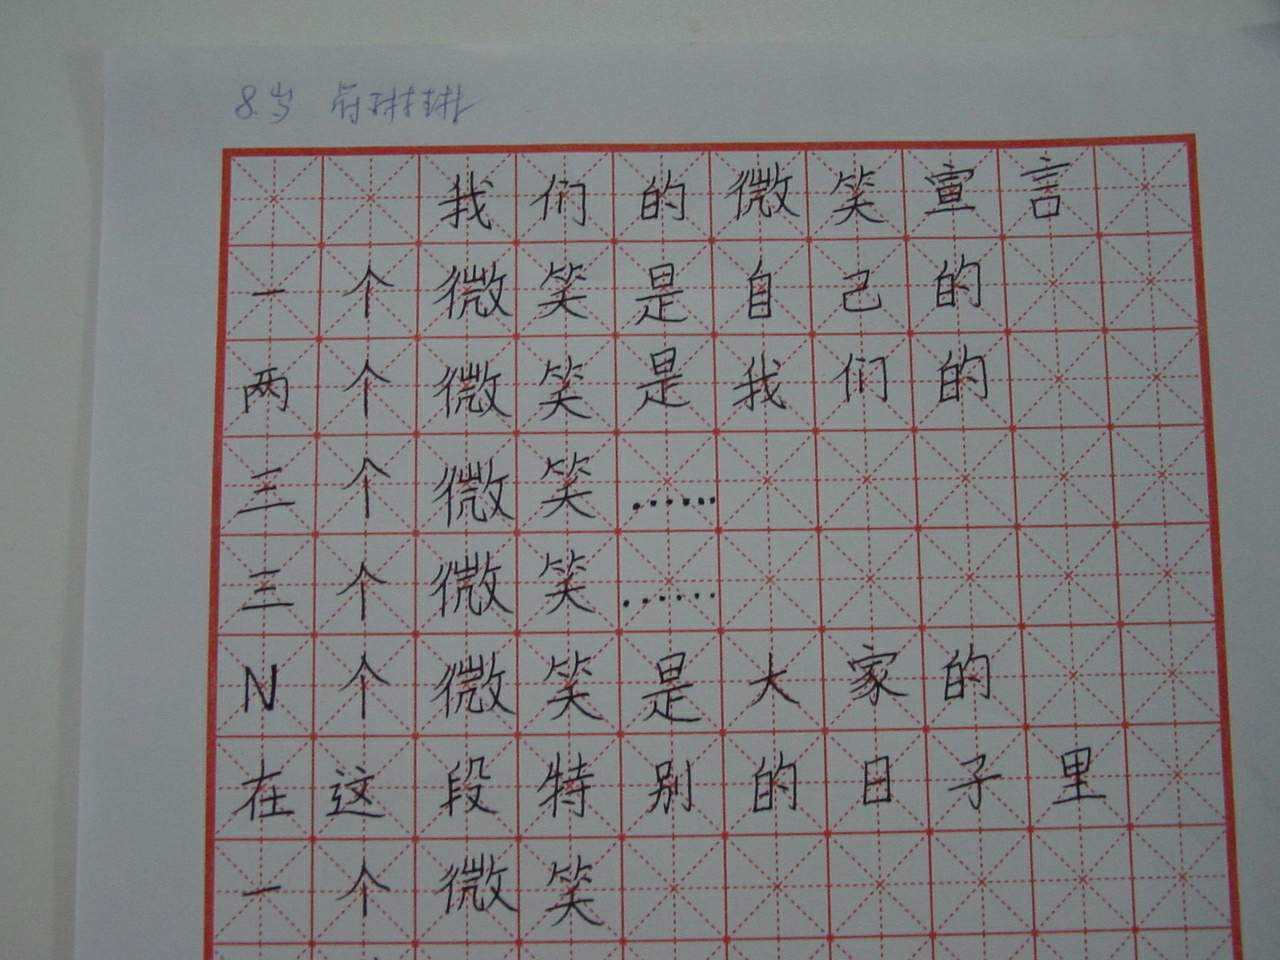 8.岁
我们的微笑宣言
一个微笑是自己的
两个微笑是我们的
三个微笑……
三个微笑……
N个微笑是大家的
在这段特别的日子里
一个微笑